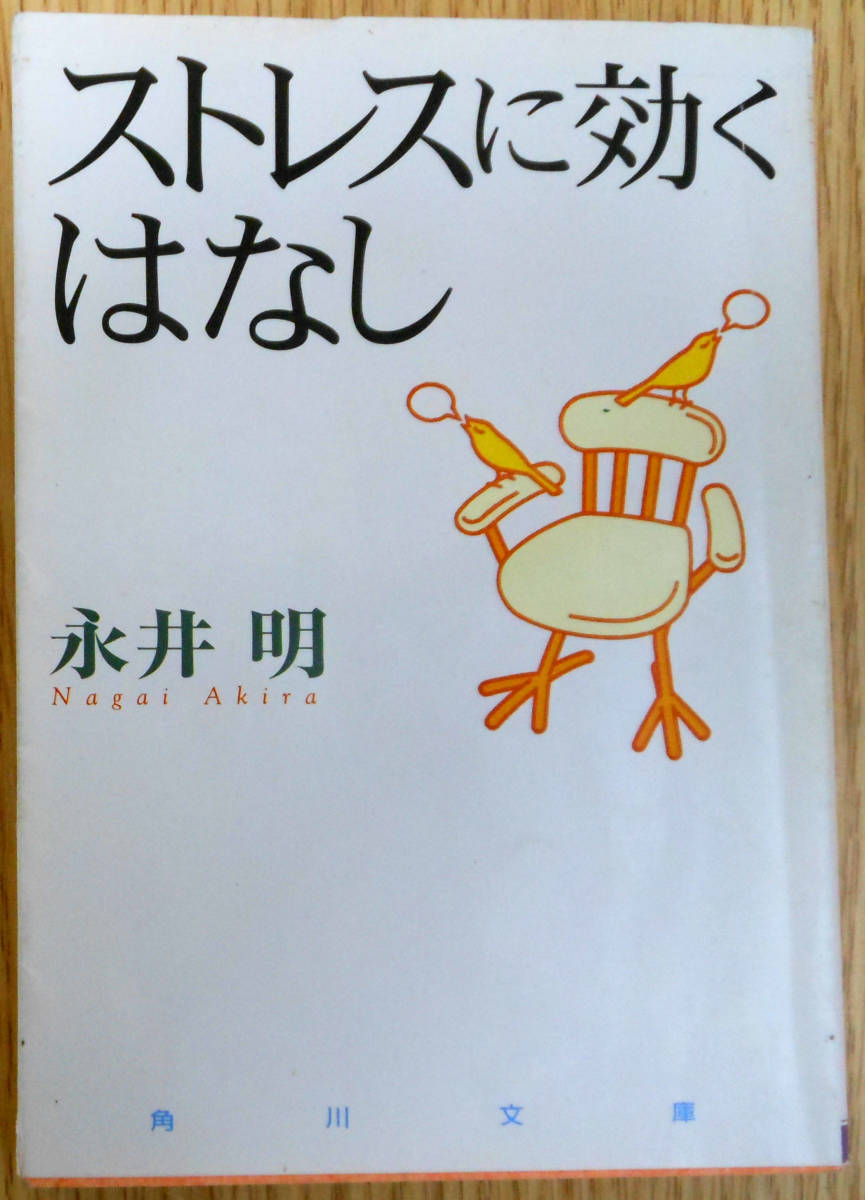 ストレスに効く
はなし
永井 明
Nagai Akira
角川文庫